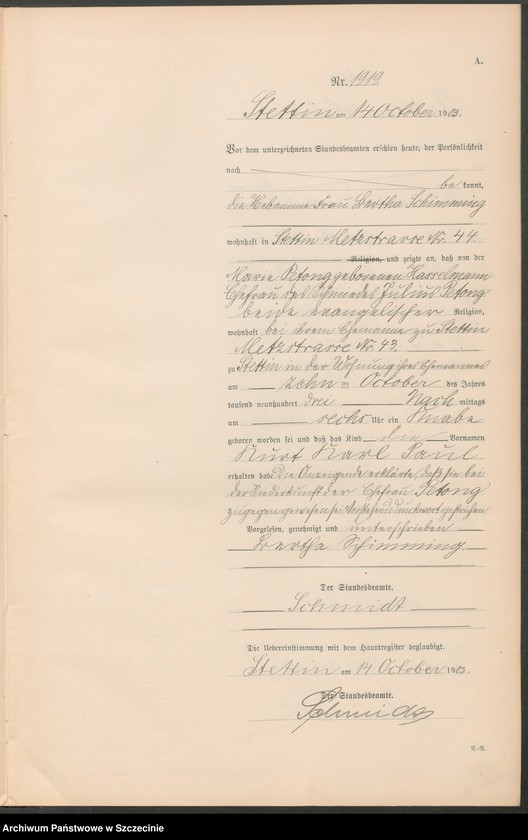 A.
Nr. 1919.
Stettin am 14 October 1903.
Vor dem unterzeichneten Standesbeamten erschien heute, der Persönlichkeit
nach
be kannt,
die Hebamme Frau Bertha Schimming
wohnhaft in Stettin Metzstrasse Nr. 44.
Religion, und zeigte an, daß von der
Marie Petong geborenen Hasselmann
Ehefrau des Schmiedes Julius Petong
beide evangelischer Religion,
wohnhaft bei ihrem Ehemanne zu Stettin
Metzstrasse Nr. 43.
zu Stettin in der Wohnung ihres Ehemannes
am zehn ten October des Jahres
tausend neunhundert drei Nach mittags
um sechs Uhr ein Knabe
geboren worden sei und daß das Kind die Vornamen
Kurt Karl Paul
erhalten habe. Die Anzeigende erklärte, daß sie bei
der Niederkunft der Ehefrau Petong
zugegen gewesen sei. Vorstehend 1 Druckwort gestrichen.
Vorgelesen, genehmigt und unterschrieben
Bertha Schimming
Der Standesbeamte.
Schmidt
Die Uebereinstimmung mit dem Hauptregister beglaubigt.
Stettin am 14 October 1903.
Der Standesbeamte.
Schmidt
R.-R.
Archiwum Państwowe w Szczecinie